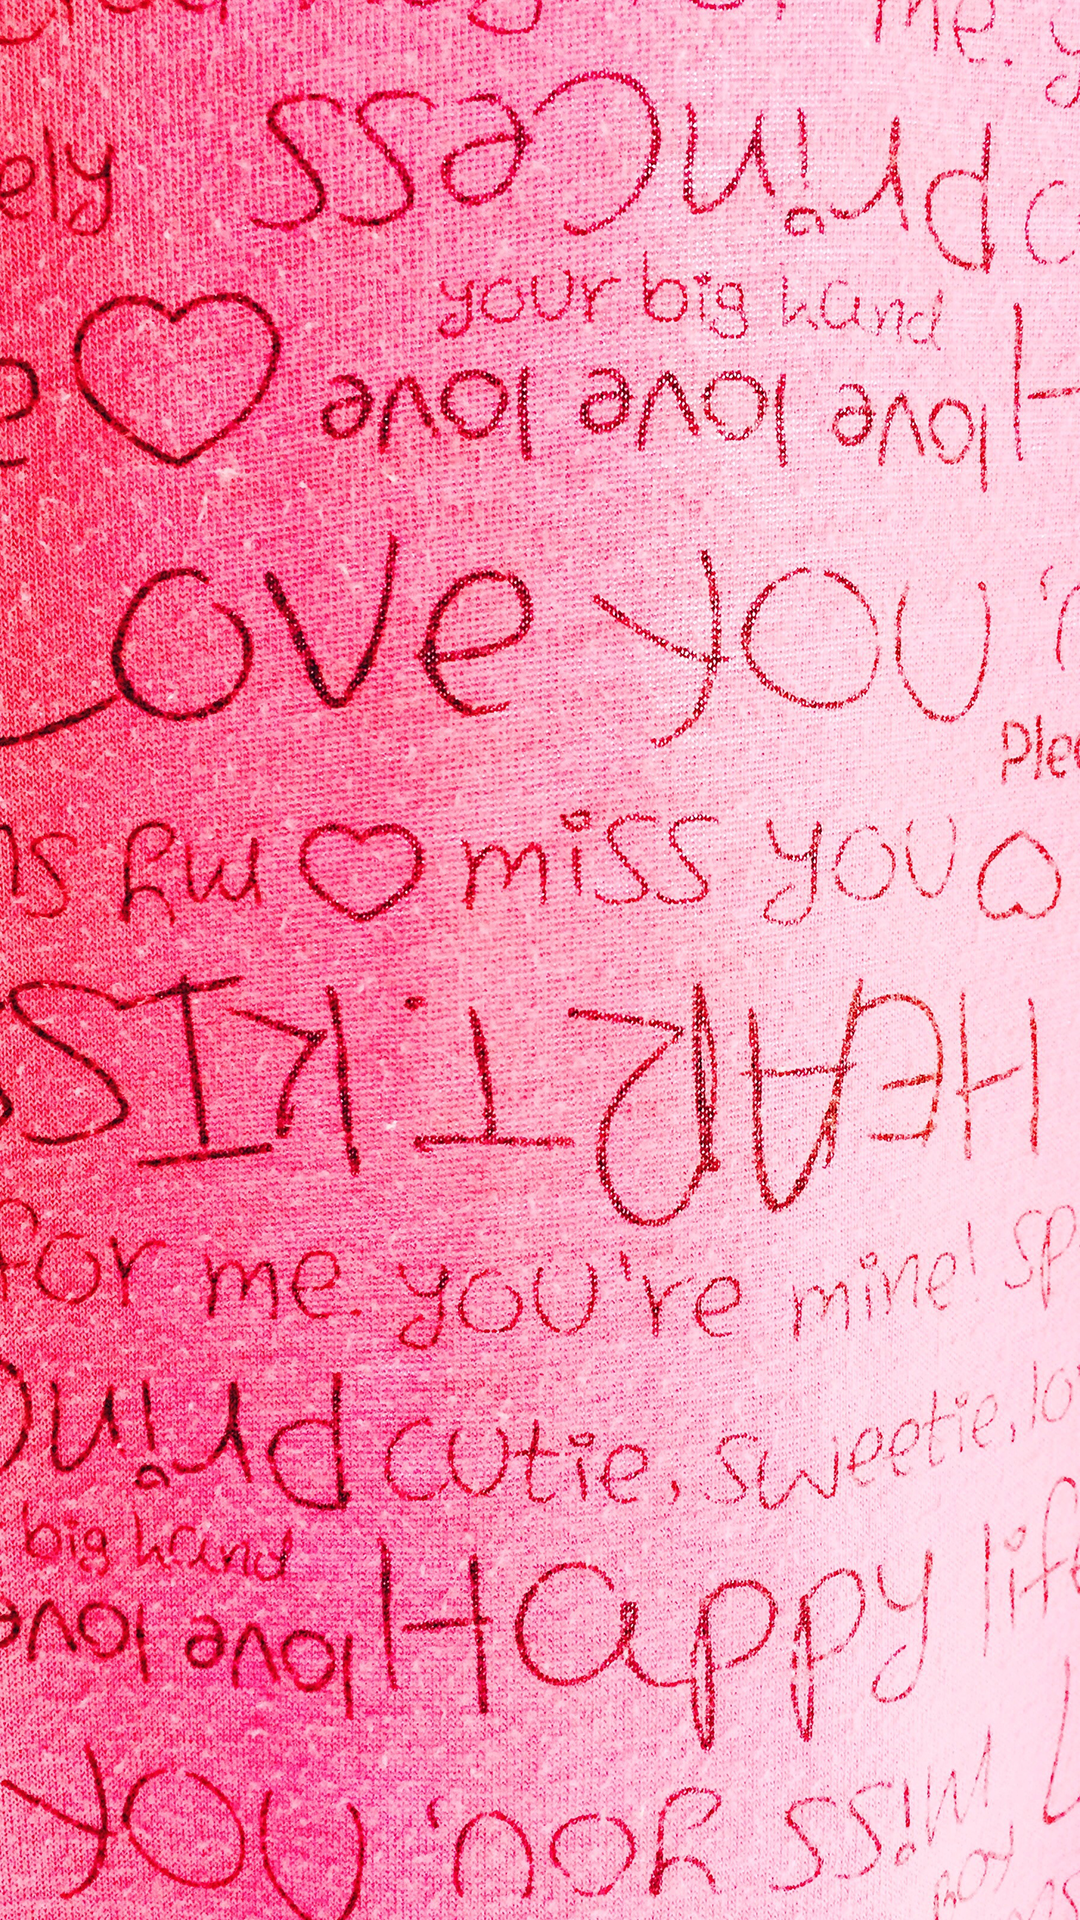 me. y
ely princess c
your big hand
love love love H
Love you
Plea
my miss you
HEART. KISS
for me. you're mine! sp
princ cutie, sweetie, lo
big hand
love love Happy life
you miss you.